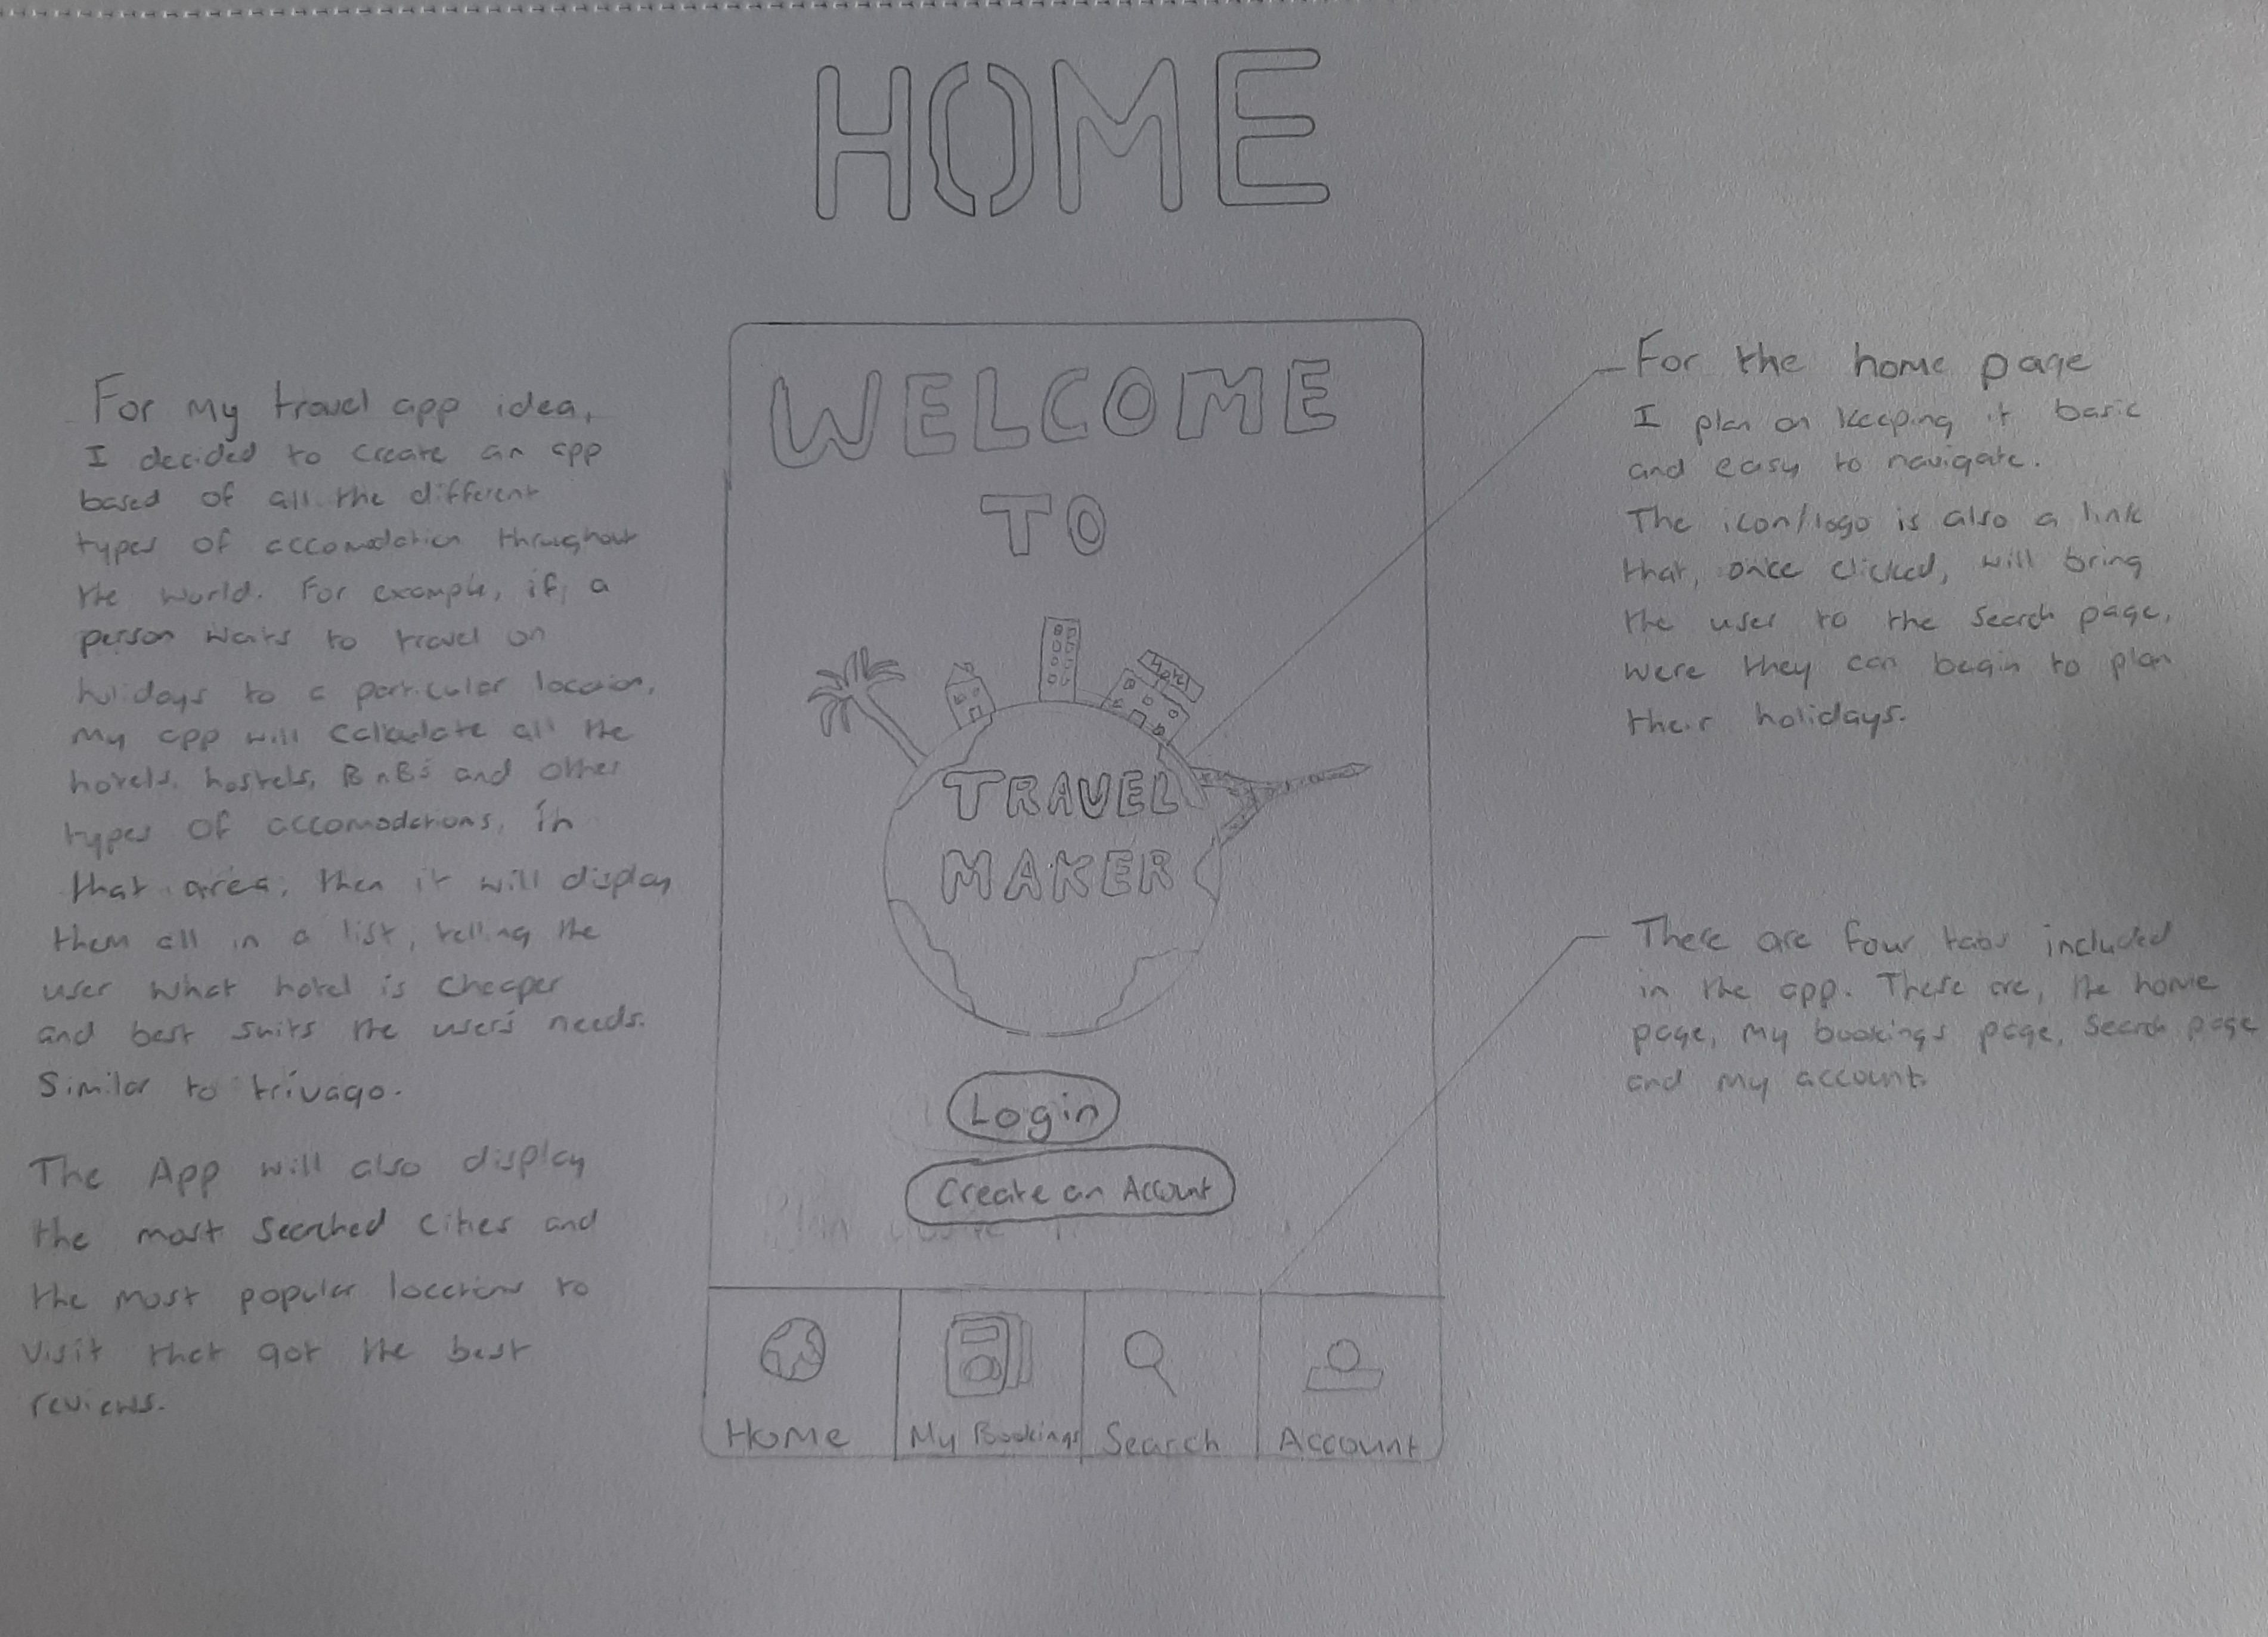 HOME
For my travel app idea,
I decided to create an app
based of all the different
types of accomodation throughout
the world. For example, if, a
person wants to travel on
holidays to a particular location,
my app will calculate all the
hotels, hostels, BnB's and other
types of accomodations, in
that area, then it will display
them all in a list, telling the
user what hotel is cheaper
and best suits the user's needs.
Similar to trivago.
The App will also display
the most searched cities and
the most popular locations to
visit that got the best
reviews.
WELCOME
TO
Hotel
TRAVEL
MAKER
Login
Create an Account
Home
My Bookings
Search
Account
For the home page
I plan on keeping it basic
and easy to navigate.
The icon/logo is also a link
that, once clicked, will bring
the user to the search page,
were they can begin to plan
their holidays.
There are four tabs included
in the app. These are, the home
page, my bookings page, search page
and my account.